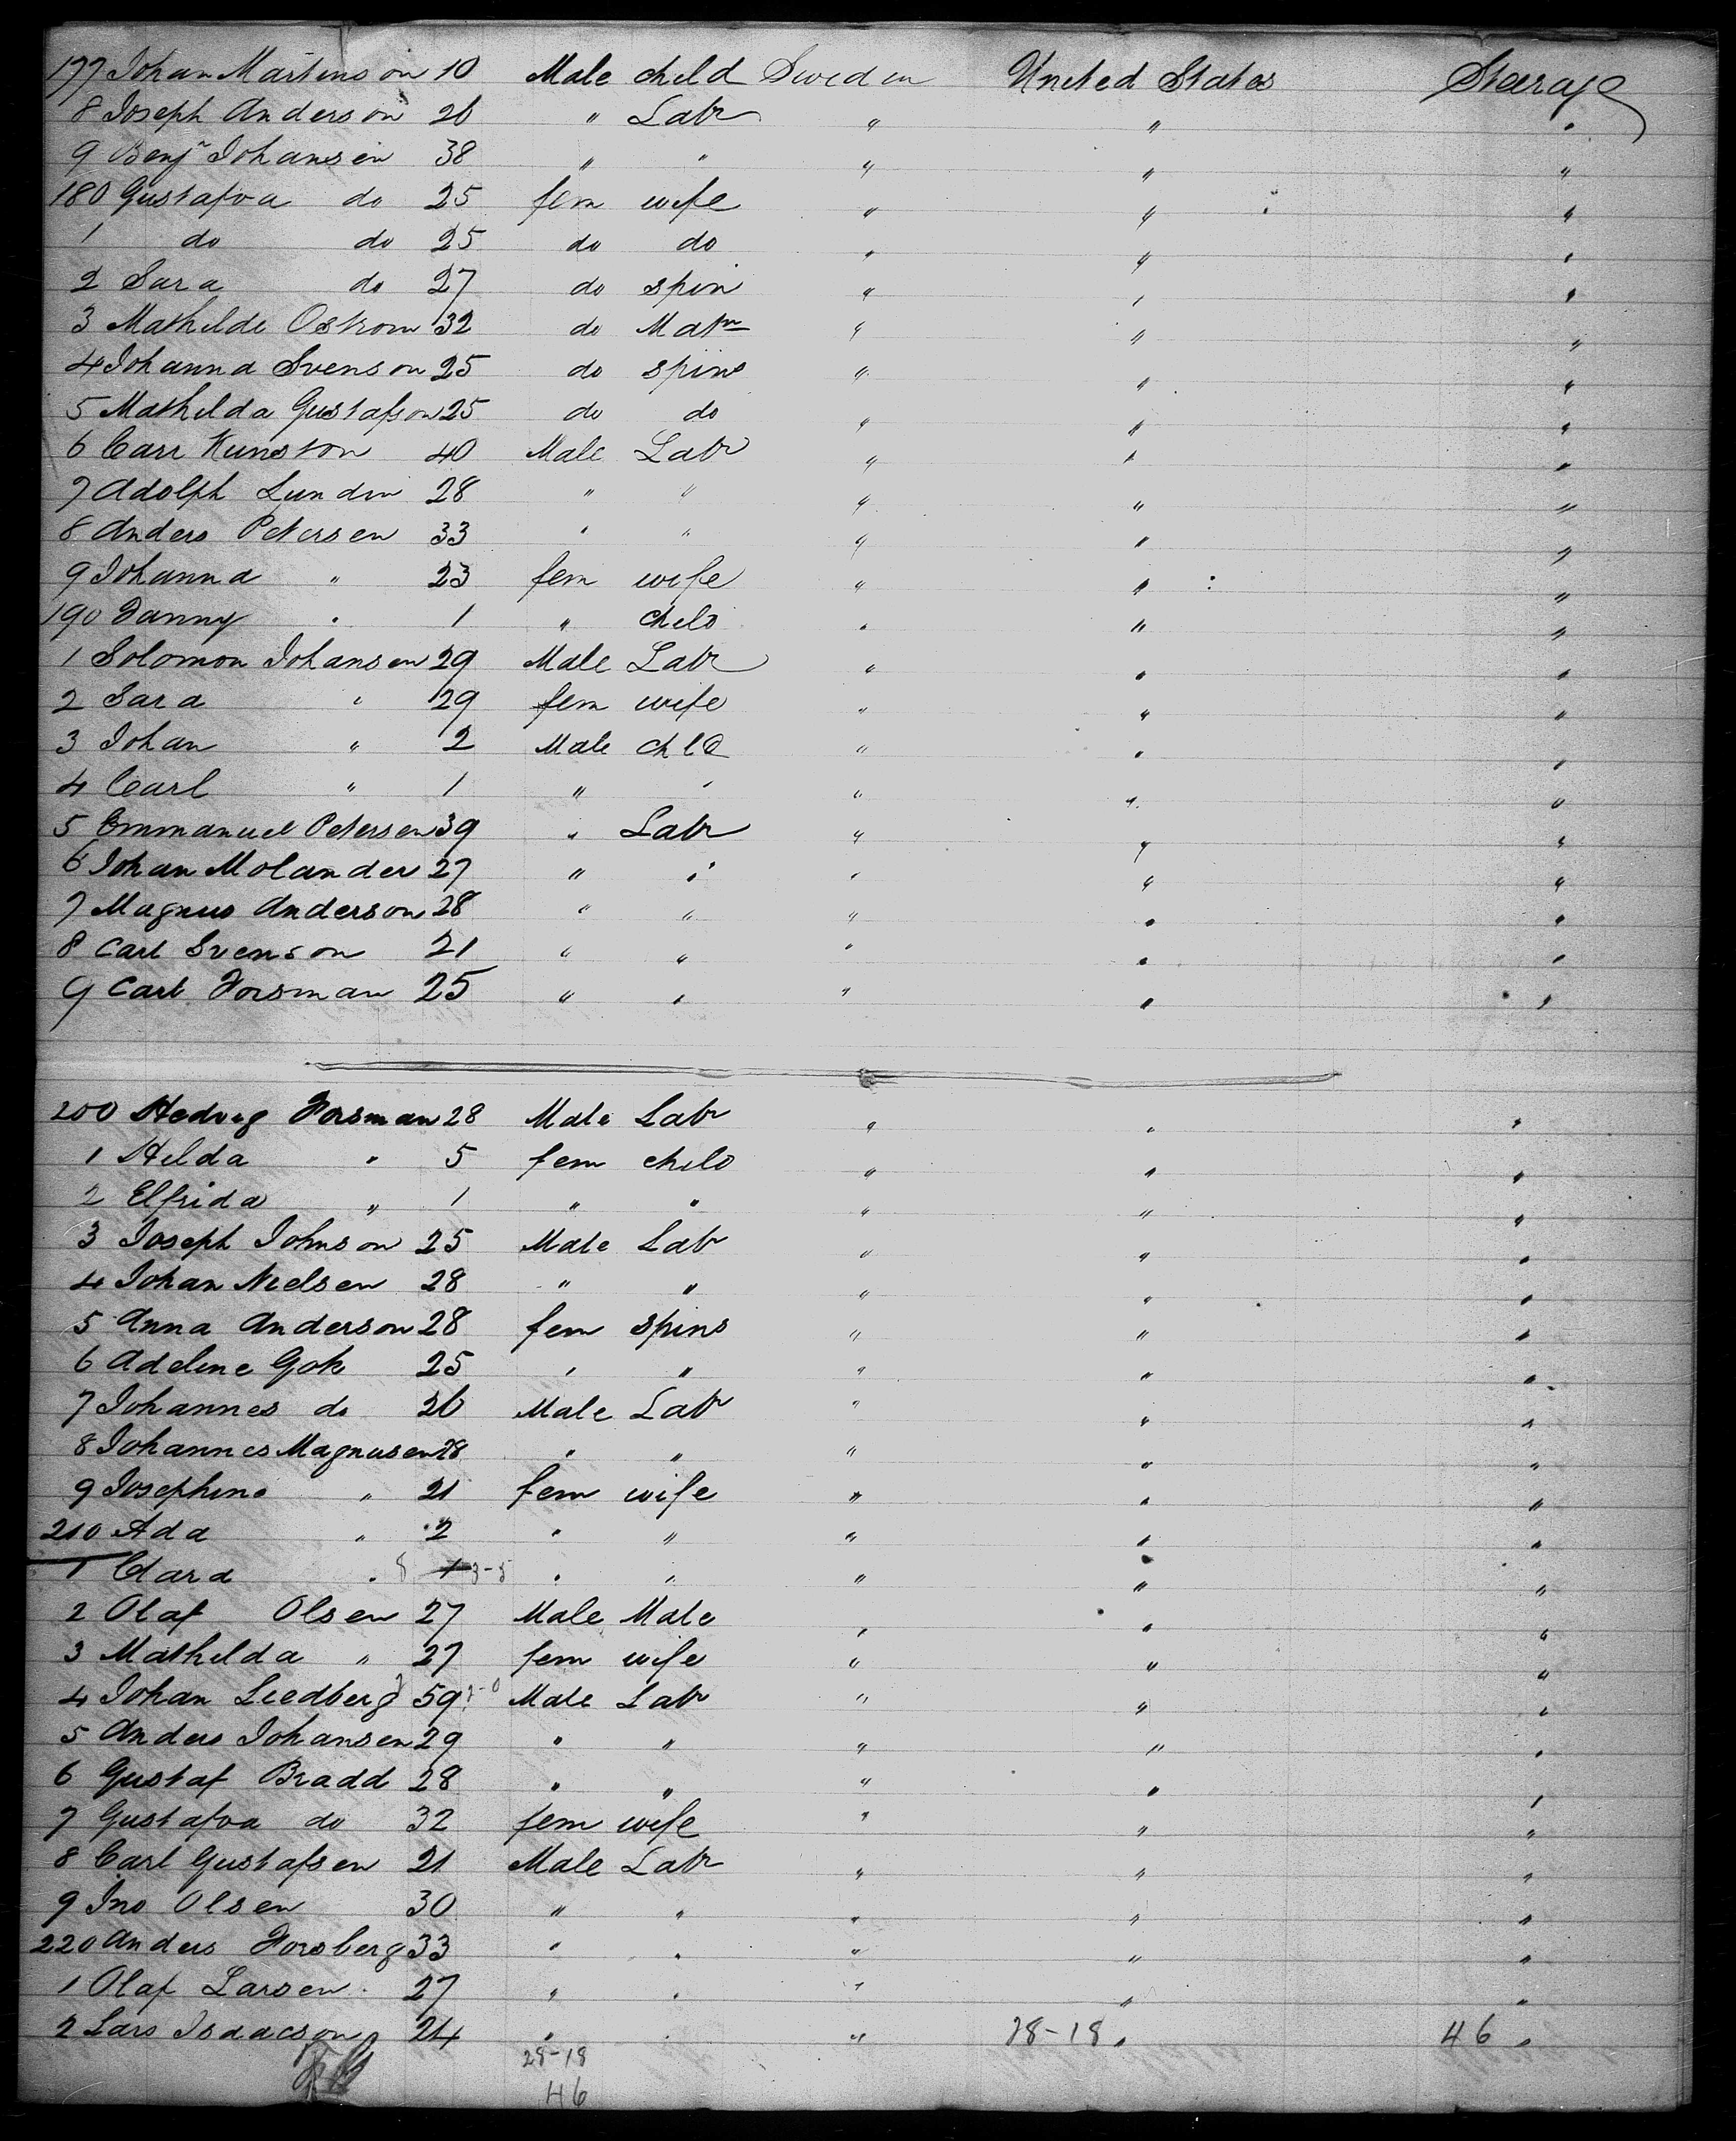 177 Johan Martinson 10 Male child Sweden United States Steerage
8 Joseph Anderson 26 " Labr " " "
9 Benjn Johansen 38 " " " " "
180 Gustafva do 25 fem wife " " "
1 do do 25 do do " " "
2 Sara do 27 do spin " " "
3 Mathilde Ostrom 32 do Matn " " "
4 Johanna Svenson 25 do spins " " "
5 Mathilda Gustafson 25 do do " " "
6 Carr Kunston 40 Male Labr " " "
7 Adolph Lundin 28 " " " " "
8 Anders Petersen 33 " " " " "
9 Johanna " 23 fem wife " " "
190 Fanny " 1 " child " " "
1 Solomon Johansen 29 Male Labr " " "
2 Sara " 29 fem wife " " "
3 Johan " 2 Male chld " " "
4 Carl " 1 " " " " "
5 Emmanuel Petersen 39 " Labr " " "
6 Johan Molander 27 " " " " "
7 Magnus Anderson 28 " " " " "
8 Carl Svenson 21 " " " " "
9 Carl Forsman 25 " " " " "
200 Hedvig Forsman 28 Male Labr " " "
1 Hilda " 5 fem child " " "
2 Elfrida " 1 " " " " "
3 Joseph Johnson 25 Male Labr " " "
4 Johan Nielsen 28 " " " " "
5 Anna Anderson 28 fem spins " " "
6 Adeline Gok 25 " " " " "
7 Johannes do 26 Male Labr " " "
8 Johannes Magnusen 28 " " " " "
9 Josephine " 21 fem wife " " "
210 Ada " 2 " " " " "
1 Clara " 8 1 3-5 " " " " "
2 Olaf Olsen 27 Male Male " " "
3 Mathilda " 27 fem wife " " "
4 Johan Leedberg 59 Male Labr " " "
5 Anders Johansen 29 " " " " "
6 Gustaf Bradd 28 " " " " "
7 Gustafva do 32 fem wife " " "
8 Carl Gustafsen 21 Male Labr " " "
9 Jno Olsen 30 " " " " "
220 Anders Forsberg 33 " " " " "
1 Olaf Larsen 27 " " " " "
2 Lars Isaacson 24 " " " 28-18 " 46 "
28-18
46